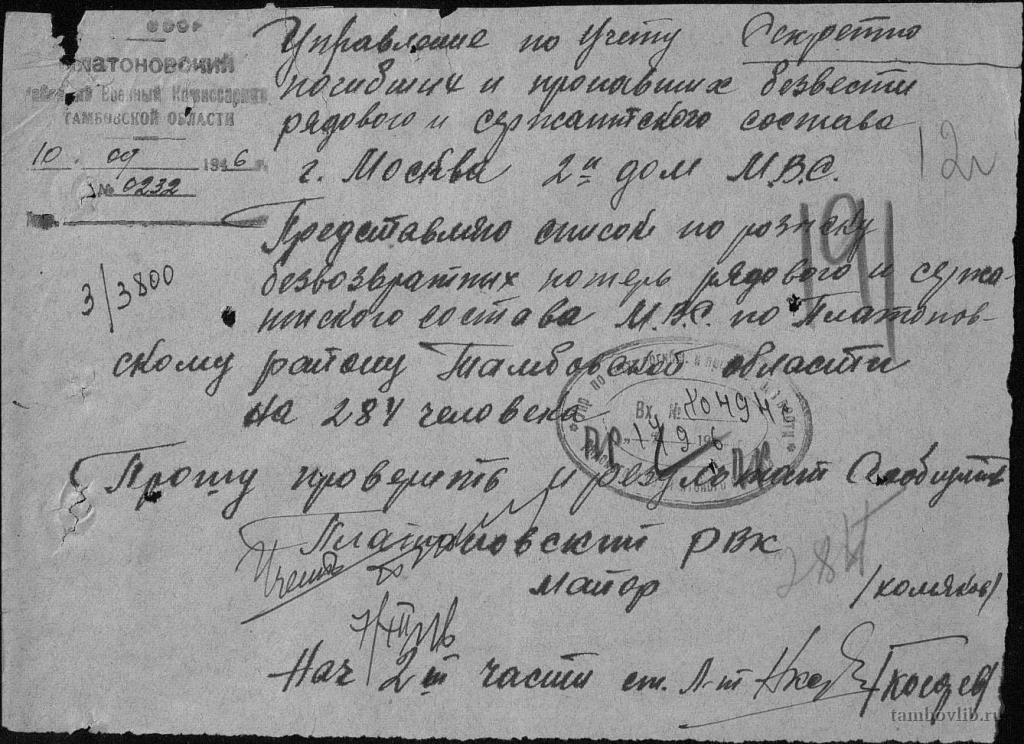 СССР
Платоновский
Районный Военный Комиссариат
ТАМБОВСКОЙ ОБЛАСТИ
10. 09 1946 г.
№ 0232
Секретно
Управление по учету
погибших и пропавших безвести
рядового и сержантского состава
г. Москва 2й дом М.В.С.
12
191
3/3800
Представляю список по розыску
безвозвратных потерь рядового и сержа-
нтского состава М.В.С. по Платонов-
скому району Тамбовской области
на 284 человека
Вх. №
19 9 6
Прошу проверить и результат сообщить
Платоновский РВК
майор /комяков/
284
Учет
7/XII
Нач 2й части ст. л-т
tambovlib.ru